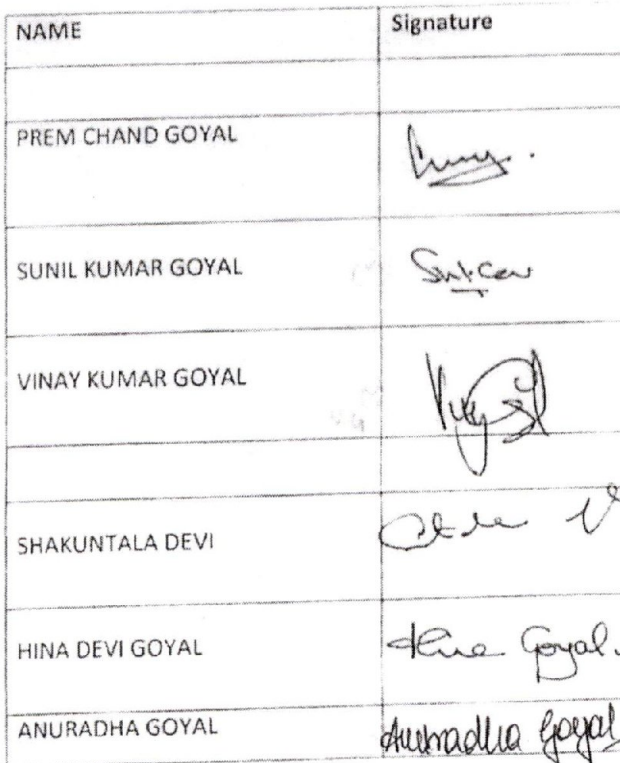 NAME Signature
PREM CHAND GOYAL
SUNIL KUMAR GOYAL
VINAY KUMAR GOYAL
SHAKUNTALA DEVI
HINA DEVI GOYAL Hina Goyal.
ANURADHA GOYAL Anuradha Goyal